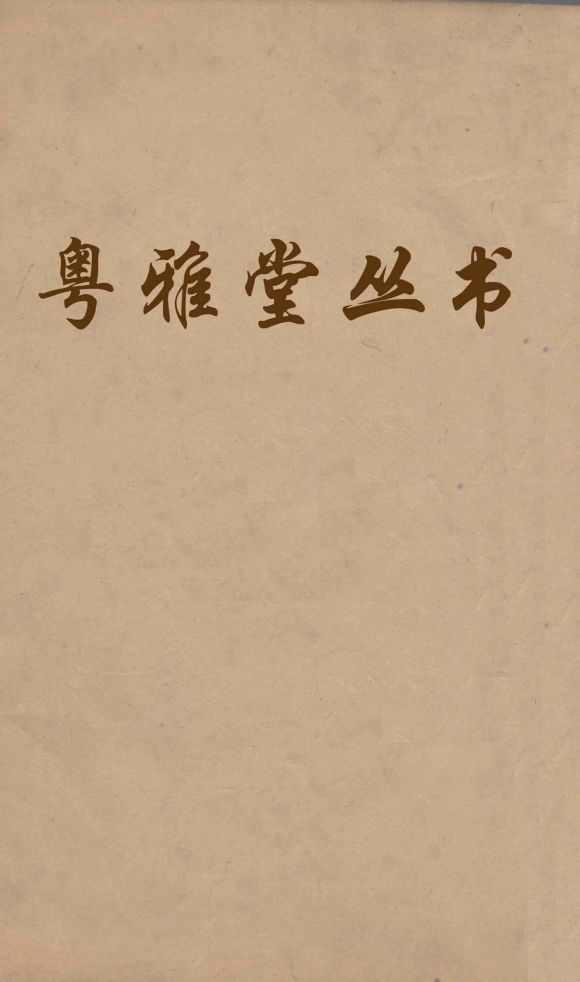 粤雅堂丛书